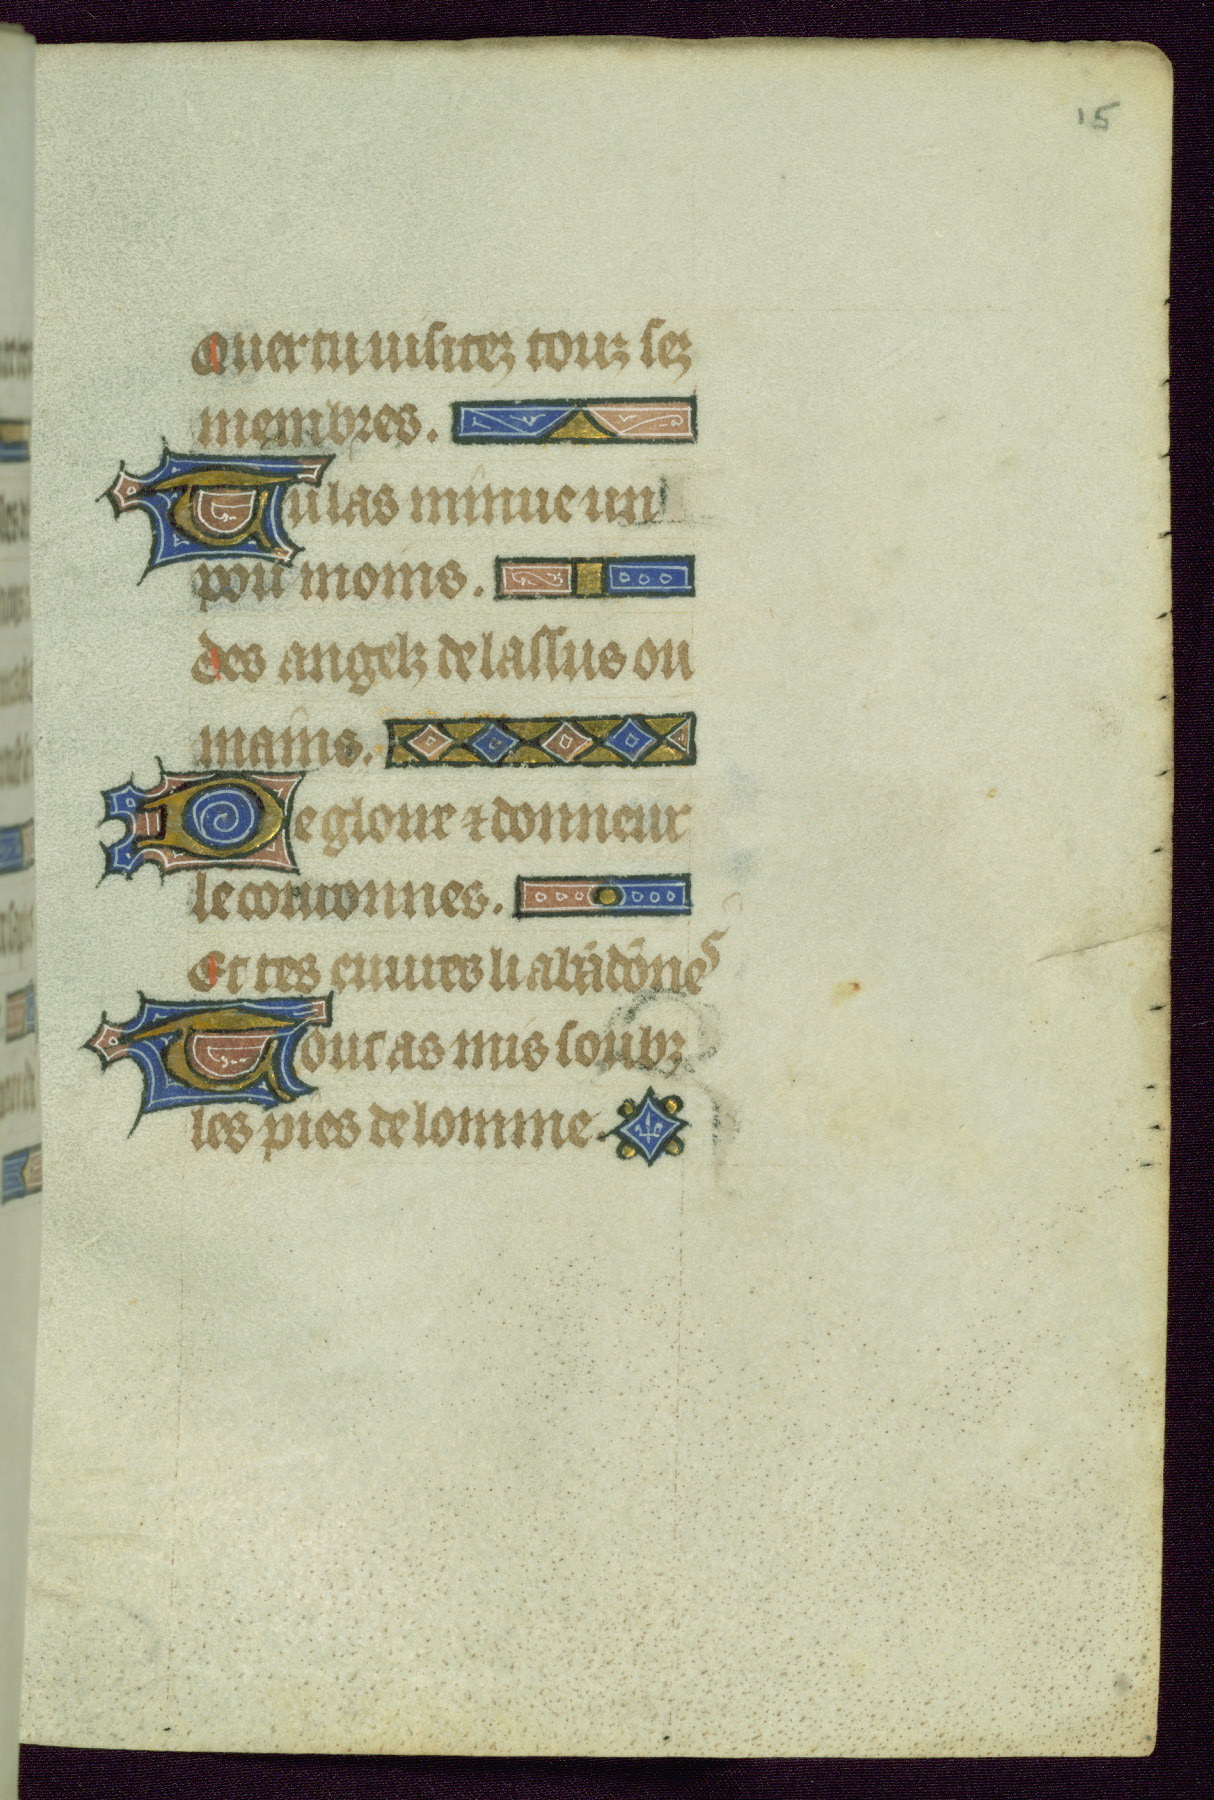 15
Quer tu uisitez touz sez
membres.
Tu las minue un
pou moins.
des angelz de lassus ou
mains.
De gloire ⁊ donneur
le couronnes.
Et tes euures li abādōnes
Tout as mis soubz
les pies de lomme.